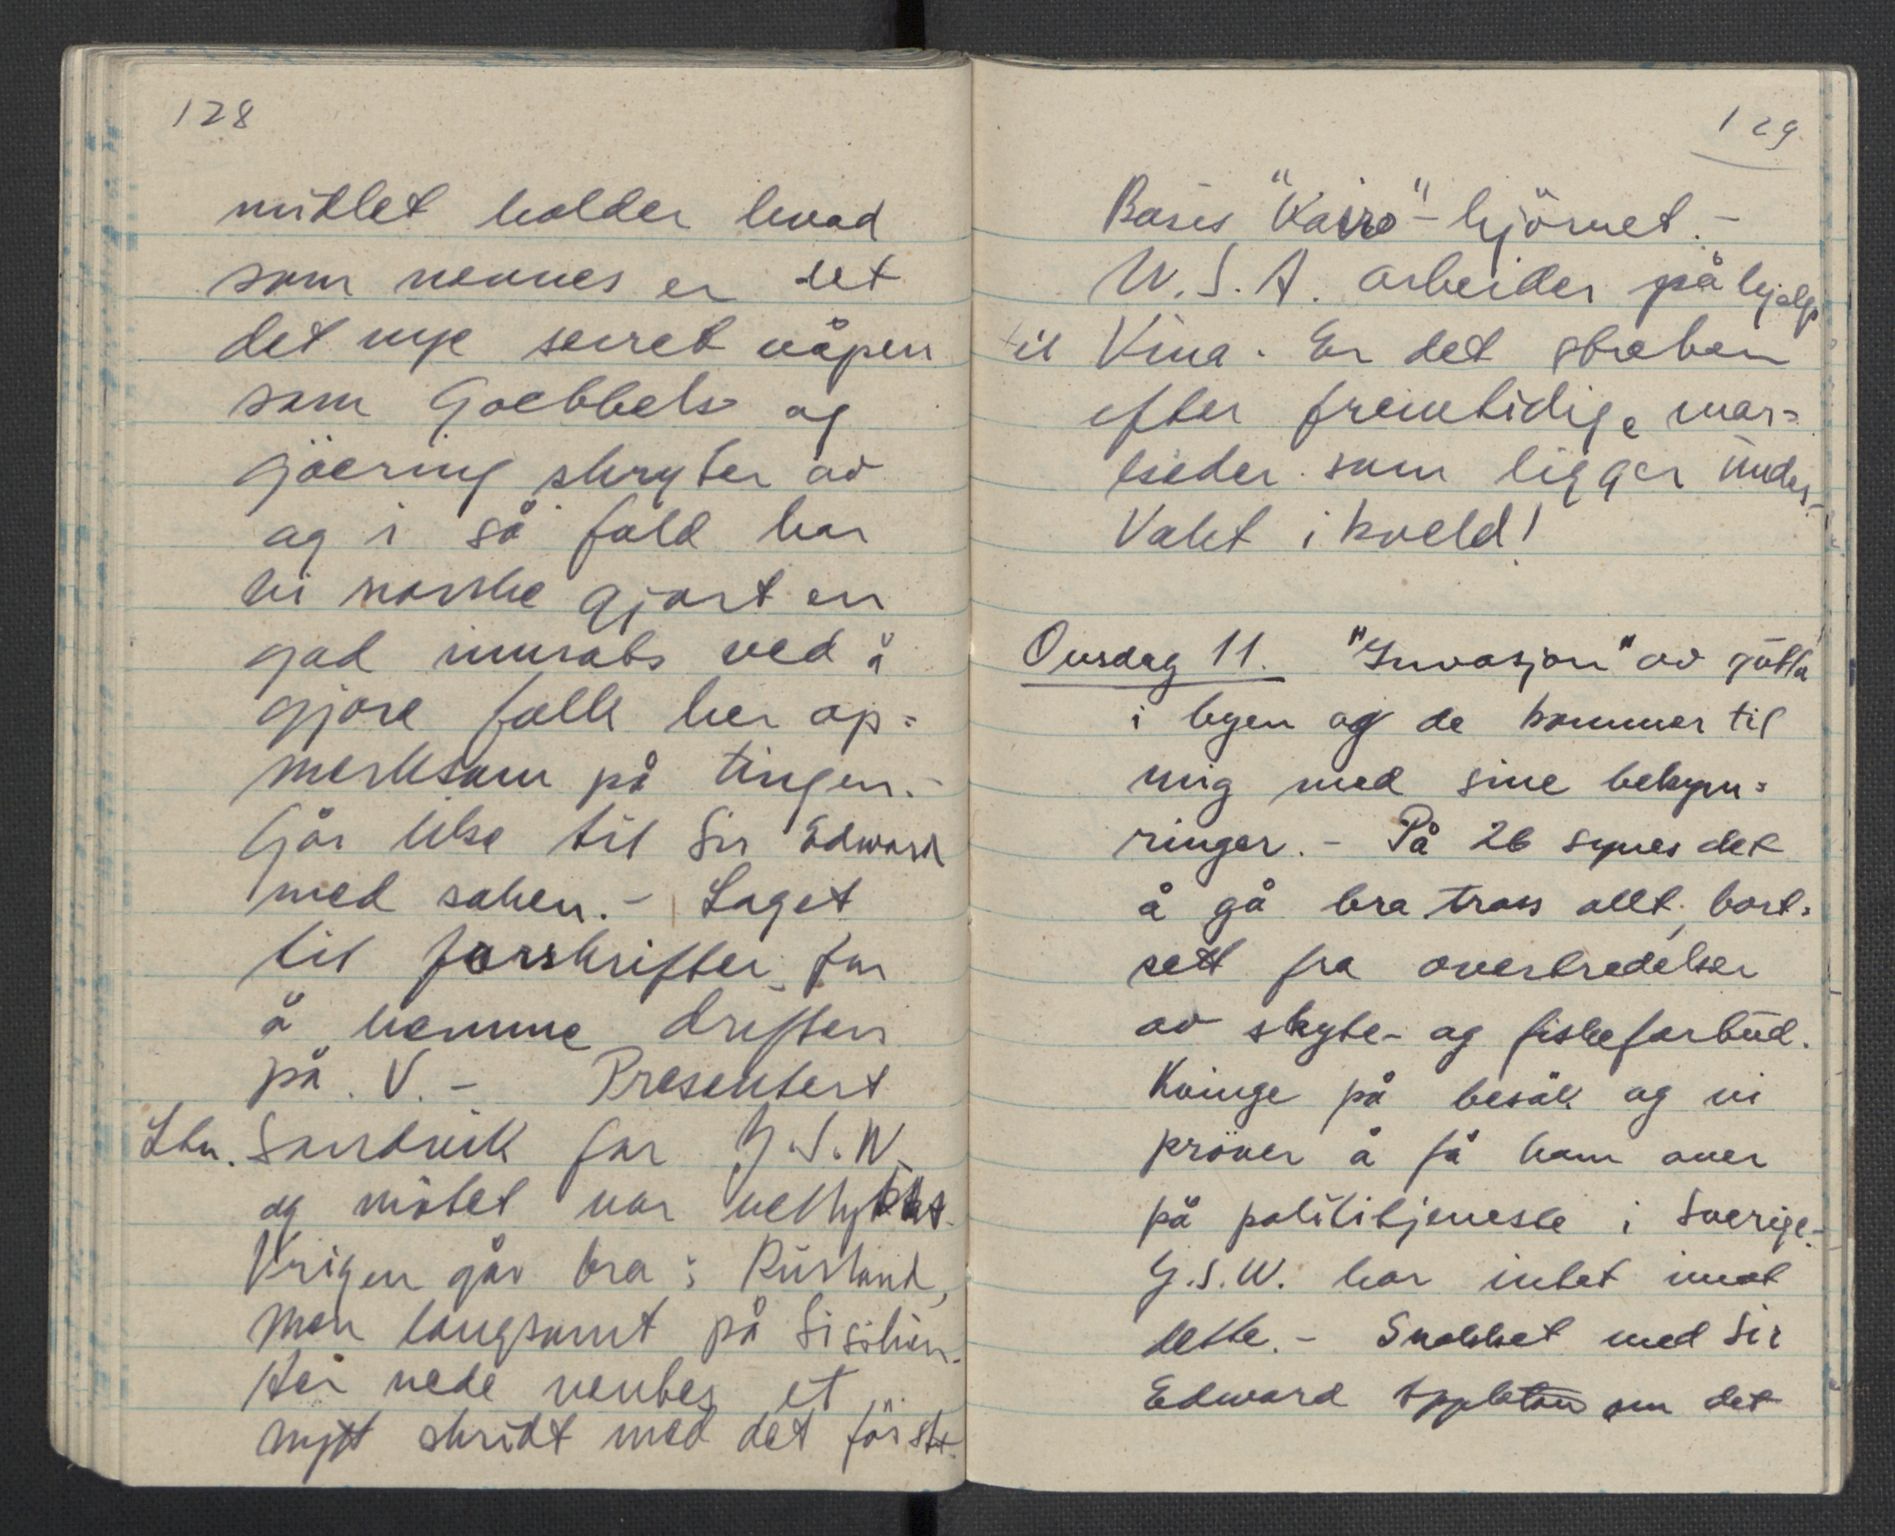 128
midlet holder hvad
som nevnes er det
det nye secret våpen
som Goebbels og
Göering skryter av
og i så fald har
vi norske gjort en
god innsats ved å
gjøre folk her op=
merksom på tingen.-
Går like til Sir Edward
med saken. - Laget
til forskrifter for
å hemme driften
på V. - Presentert
Ltn. Sandvik for G.S.W.
og mötet var vellykket.
Krigen går bra i Rusland,
men langsomt på Sisilien.
Her nede ventes et
nytt skridt med det först.
129
Basis "Kairo"-hjörnet. -
U.S.A. arbeider på hjelp
til Kina. Er det streben
efter fremtidige mar=
keder som ligger under.-
Vakt i kveld!
Onsdag 11. "Invasjon" av gutta
i byen og de kommer til
mig med sine bekym=
ringer. - På 26 synes det
å gå bra tross allt, bort=
sett fra overtredelser
av skyte- og fiskeforbud.
Kvinge på besök og vi
pröver å få ham over
på polititjeneste i Sverige.-
G.S.W. har intet imot
dette. - Snakket med Sir
Edward Appleton om det